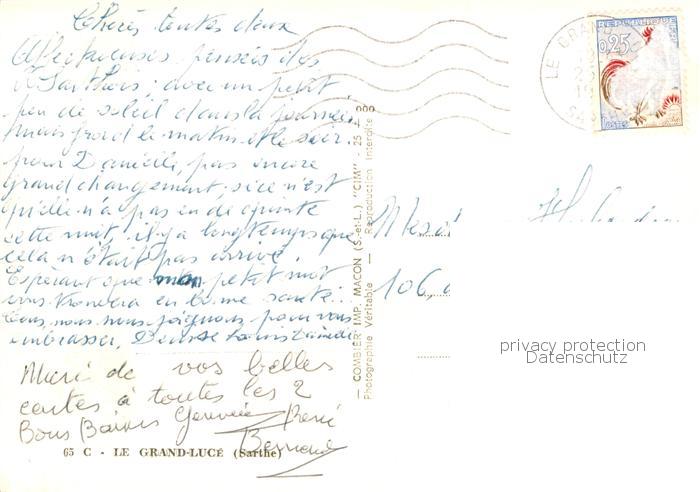 Chères toutes deux
Affectueuses pensées des
Sarthois, avec un petit
peu de soleil dans la journée,
mais froid le matin et le soir.
pour Danielle, pas encore
grand changement, si ce n'est
qu'elle n'a pas eu de
cette nuit, il y a longtemps que
cela n'était pas arrivé.
Espérant que mon petit mot
vous trouvera en bonne santé.
Tous nous nous joignons pour vous
embrasser, Denise
Merci de vos belles
cartes à toutes les 2
Bons Baisers Geneviève René
Bernard
65 C - LE GRAND-LUCÉ (Sarthe)
— COMBIER IMP. MACON (S.-et-L.) "CIM" - 25 4
Photographie Véritable — Reproduction Interdite
LE GRAND
REPUBLIQUE
0,25
Postes
106,
privacy protection
Datenschutz